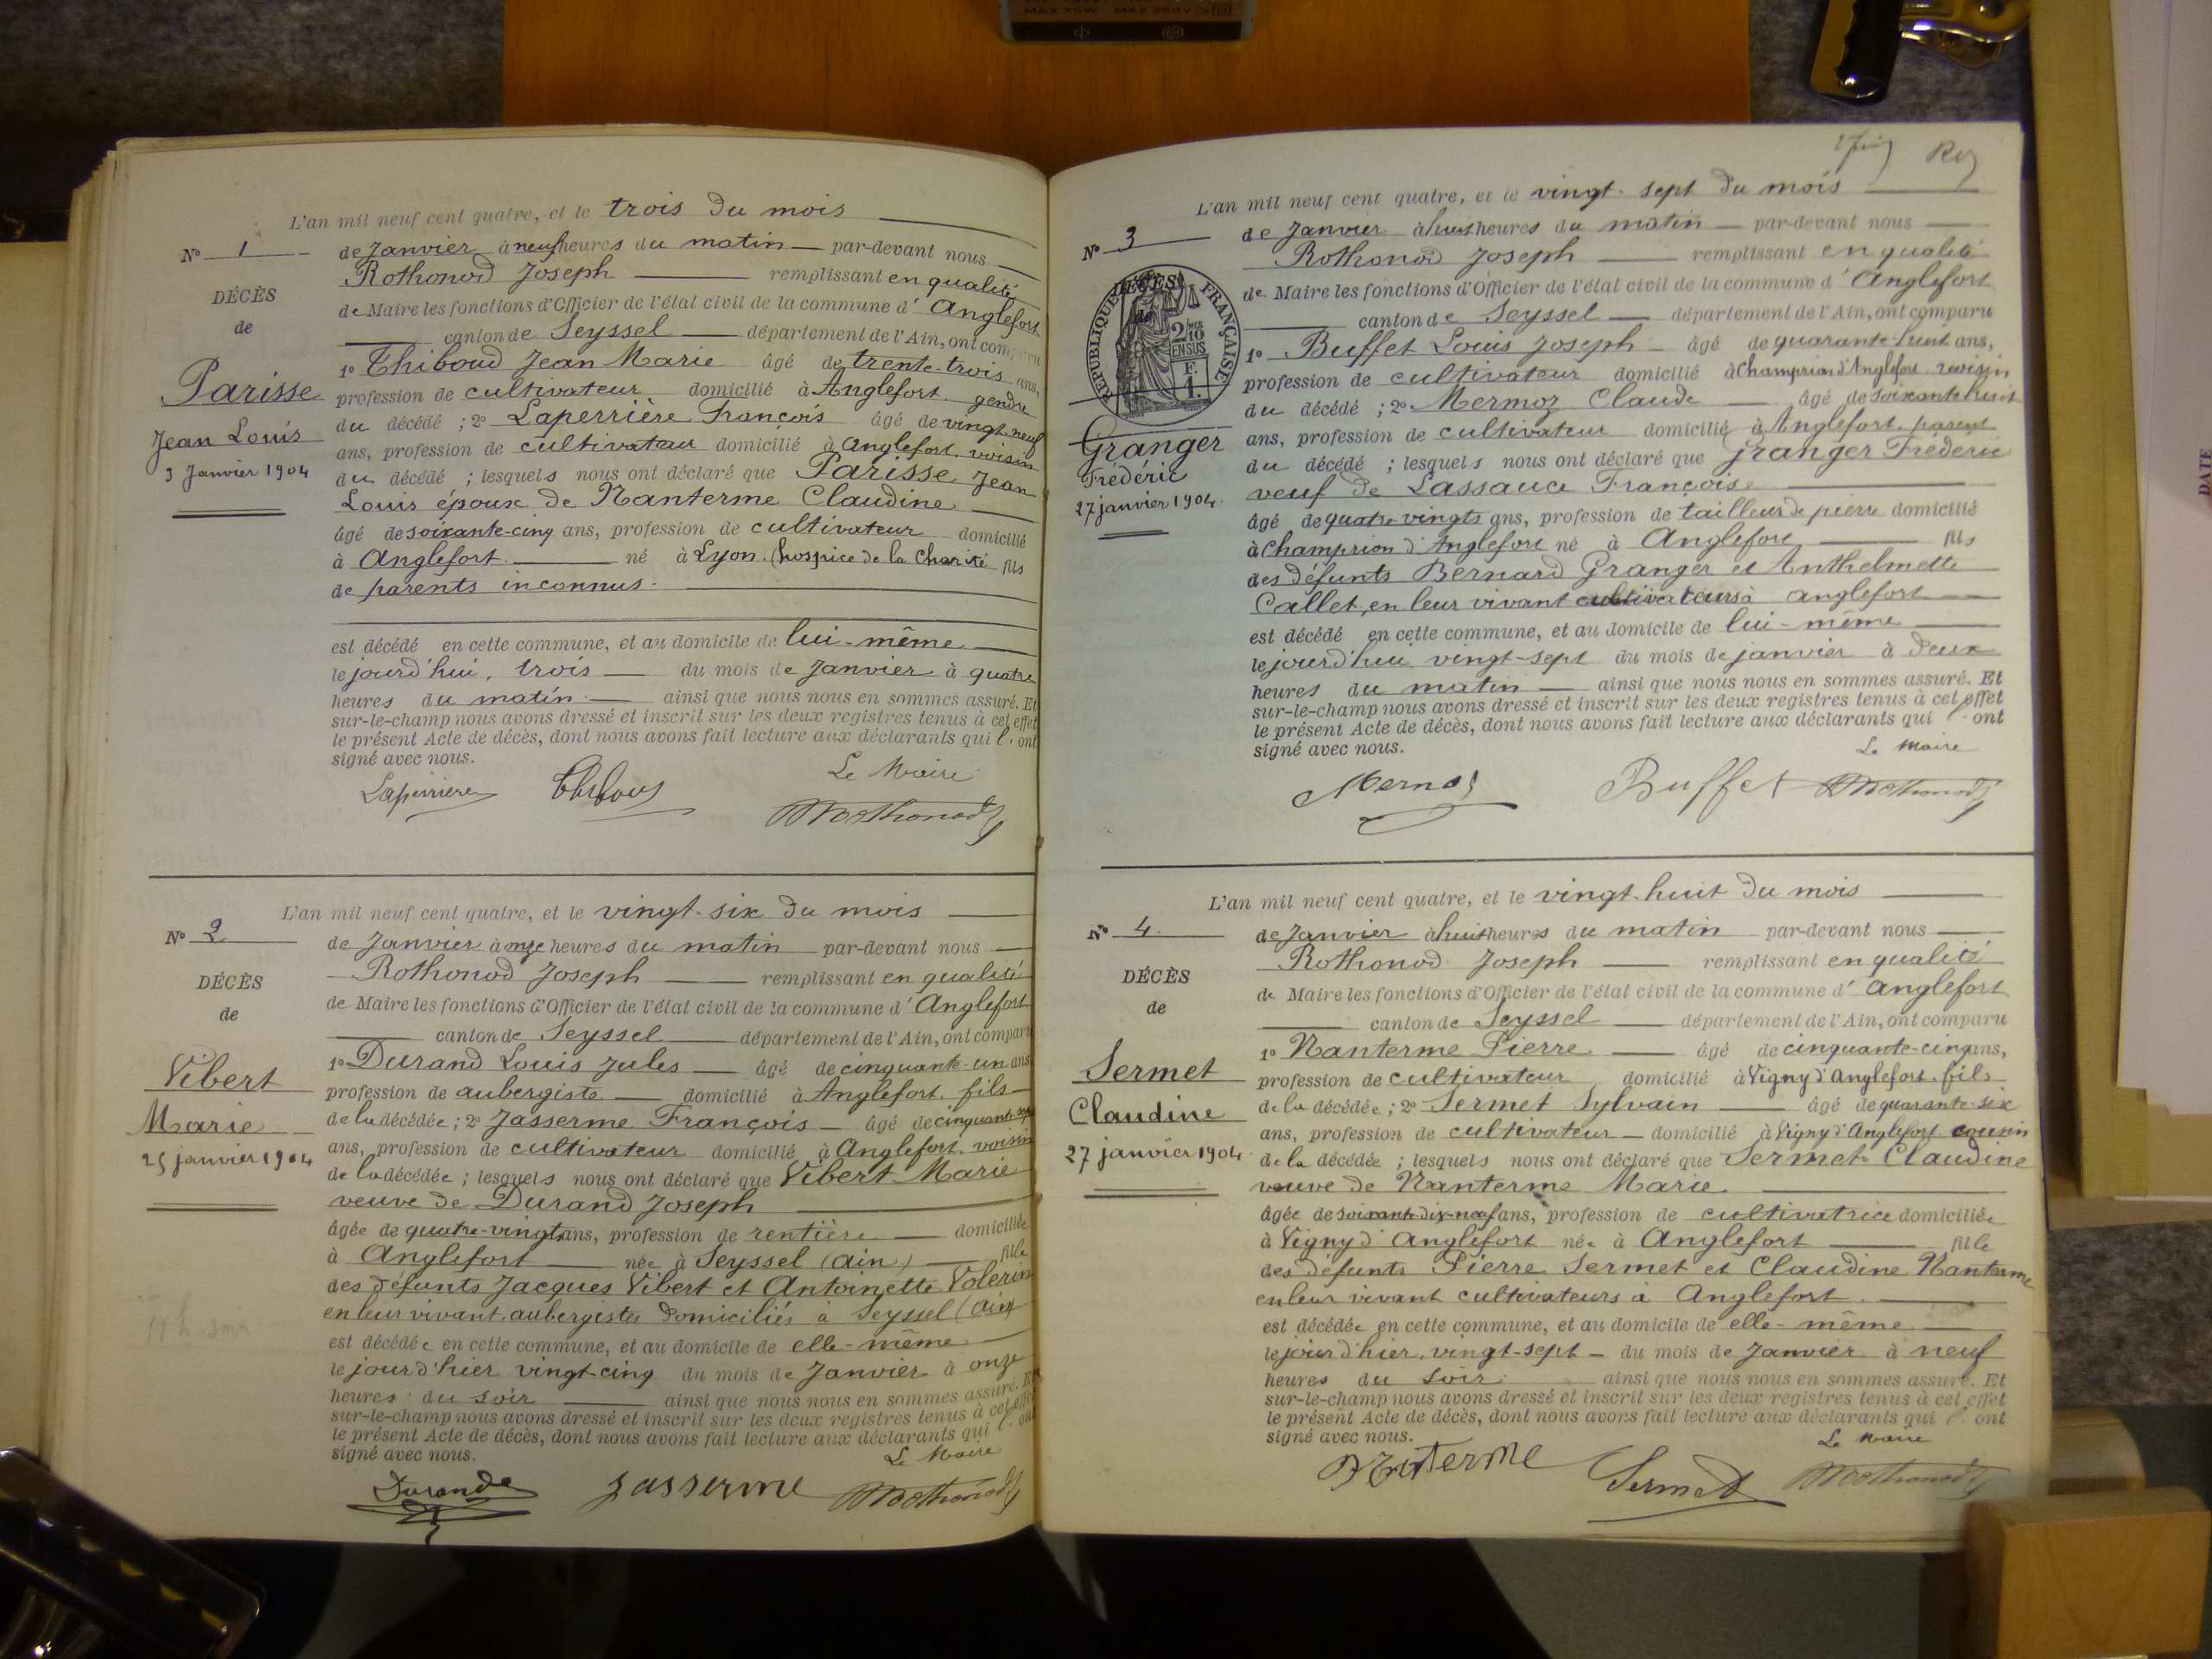 MAX 75W MAX 250V
L'an mil neuf cent quatre, et le trois du mois
N° 1
de Janvier à neuf heures du matin par-devant nous
Rothonod Joseph remplissant en qualité
DÉCÈS
de Maire les fonctions d'Officier de l'état civil de la commune d' Anglefort
de
canton de Seyssel département de l'Ain, ont comparu
1° Thiboud Jean Marie âgé de trente-trois ans,
Parisse
profession de cultivateur domicilié à Anglefort gendre
du décédé ; 2° Laperrière François âgé de vingt-neuf
Jean Louis
ans, profession de cultivateur domicilié à Anglefort, voisin
3 Janvier 1904
du décédé ; lesquels nous ont déclaré que Parisse Jean
Louis époux de Nanterme Claudine
âgé de soixante-cinq ans, profession de cultivateur domicilié
à Anglefort né à Lyon (hospice de la Charité fils
de parents inconnus.
est décédé en cette commune, et au domicile de lui-même
le jourd'hui, trois du mois de Janvier à quatre
heures du matin ainsi que nous nous en sommes assuré. Et
sur-le-champ nous avons dressé et inscrit sur les deux registres tenus à cet effet
le présent Acte de décès, dont nous avons fait lecture aux déclarants qui l'ont
signé avec nous.
Le Maire
Laperrière Thiboud Rothonod
L'an mil neuf cent quatre, et le vingt-six du mois
N° 2
de Janvier à onze heures du matin par-devant nous
Rothonod Joseph remplissant en qualité
DÉCÈS
de Maire les fonctions d'Officier de l'état civil de la commune d' Anglefort
de
canton de Seyssel département de l'Ain, ont comparu
1° Durand Louis Jules âgé de cinquante-un ans
Vibert
profession de aubergiste domicilié à Anglefort, fils
Marie
de la décédée ; 2° Jasserme François âgé de cinquante-sept
ans, profession de cultivateur domicilié à Anglefort, voisin
25 janvier 1904
de la décédée ; lesquels nous ont déclaré que Vibert Marie
veuve de Durand Joseph
âgée de quatre-vingts ans, profession de rentière domiciliée
à Anglefort née à Seyssel (Ain) fille
des défunts Jacques Vibert et Antoinette Volerin
en leur vivant aubergistes domiciliés à Seyssel (Ain)
11 h soir
est décédée en cette commune, et au domicile de elle-même
le jourd'hier vingt-cinq du mois de Janvier à onze
heures du soir ainsi que nous nous en sommes assuré. Et
sur-le-champ nous avons dressé et inscrit sur les deux registres tenus à cet effet
le présent Acte de décès, dont nous avons fait lecture aux déclarants qui l'ont
signé avec nous.
Le Maire
Durand Jasserme Rothonod
L'an mil neuf cent quatre, et le vingt-sept du mois
N° 3
de Janvier à huit heures du matin par-devant nous
Rothonod Joseph remplissant en qualité
DÉCÈS
de
RÉPUBLIQUE FRANÇAISE
2/10 EN SUS
F. 1.
de Maire les fonctions d'Officier de l'état civil de la commune d' Anglefort
canton de Seyssel département de l'Ain, ont comparu
1° Buffet Louis Joseph âgé de quarante-huit ans,
profession de cultivateur domicilié à Champrion d'Anglefort voisin
du décédé ; 2° Mermoz Claude âgé de soixante-huit
Granger
ans, profession de cultivateur domicilié à Anglefort, parent
Frédéric
du décédé ; lesquels nous ont déclaré que Granger Frédéric
27 janvier 1904.
veuf de Lassauce Françoise
âgé de quatre-vingts ans, profession de tailleur de pierre domicilié
à Champrion d'Anglefort né à Anglefort fils
des défunts Bernard Granger et Anthelmette
Callet, en leur vivant cultivateurs à Anglefort
est décédé en cette commune, et au domicile de lui-même
le jourd'hui vingt-sept du mois de janvier à deux
heures du matin ainsi que nous nous en sommes assuré. Et
sur-le-champ nous avons dressé et inscrit sur les deux registres tenus à cet effet
le présent Acte de décès, dont nous avons fait lecture aux déclarants qui l'ont
signé avec nous.
Le Maire
Mermoz Buffet Rothonod
L'an mil neuf cent quatre, et le vingt-huit du mois
N° 4
de Janvier à huit heures du matin par-devant nous
Rothonod Joseph remplissant en qualité
DÉCÈS
de Maire les fonctions d'Officier de l'état civil de la commune d' Anglefort
de
canton de Seyssel département de l'Ain, ont comparu
1° Nanterme Pierre âgé de cinquante-cinq ans,
Sermet
profession de cultivateur domicilié à Vigny d'Anglefort, fils
Claudine
de la décédée ; 2° Sermet Sylvain âgé de quarante-six
ans, profession de cultivateur domicilié à Vigny d'Anglefort cousin
27 janvier 1904.
de la décédée ; lesquels nous ont déclaré que Sermet Claudine
veuve de Nanterme Marie
âgée de soixante-dix-neuf ans, profession de cultivatrice domiciliée
à Vigny d'Anglefort née à Anglefort fille
des défunts Pierre Sermet et Claudine Nanterme
en leur vivant cultivateurs à Anglefort.
est décédée en cette commune, et au domicile de elle-même
le jourd'hier, vingt-sept du mois de Janvier à neuf
heures du soir ainsi que nous nous en sommes assuré. Et
sur-le-champ nous avons dressé et inscrit sur les deux registres tenus à cet effet
le présent Acte de décès, dont nous avons fait lecture aux déclarants qui l'ont
signé avec nous.
Le Maire
Nanterme Sermet Rothonod
DATE